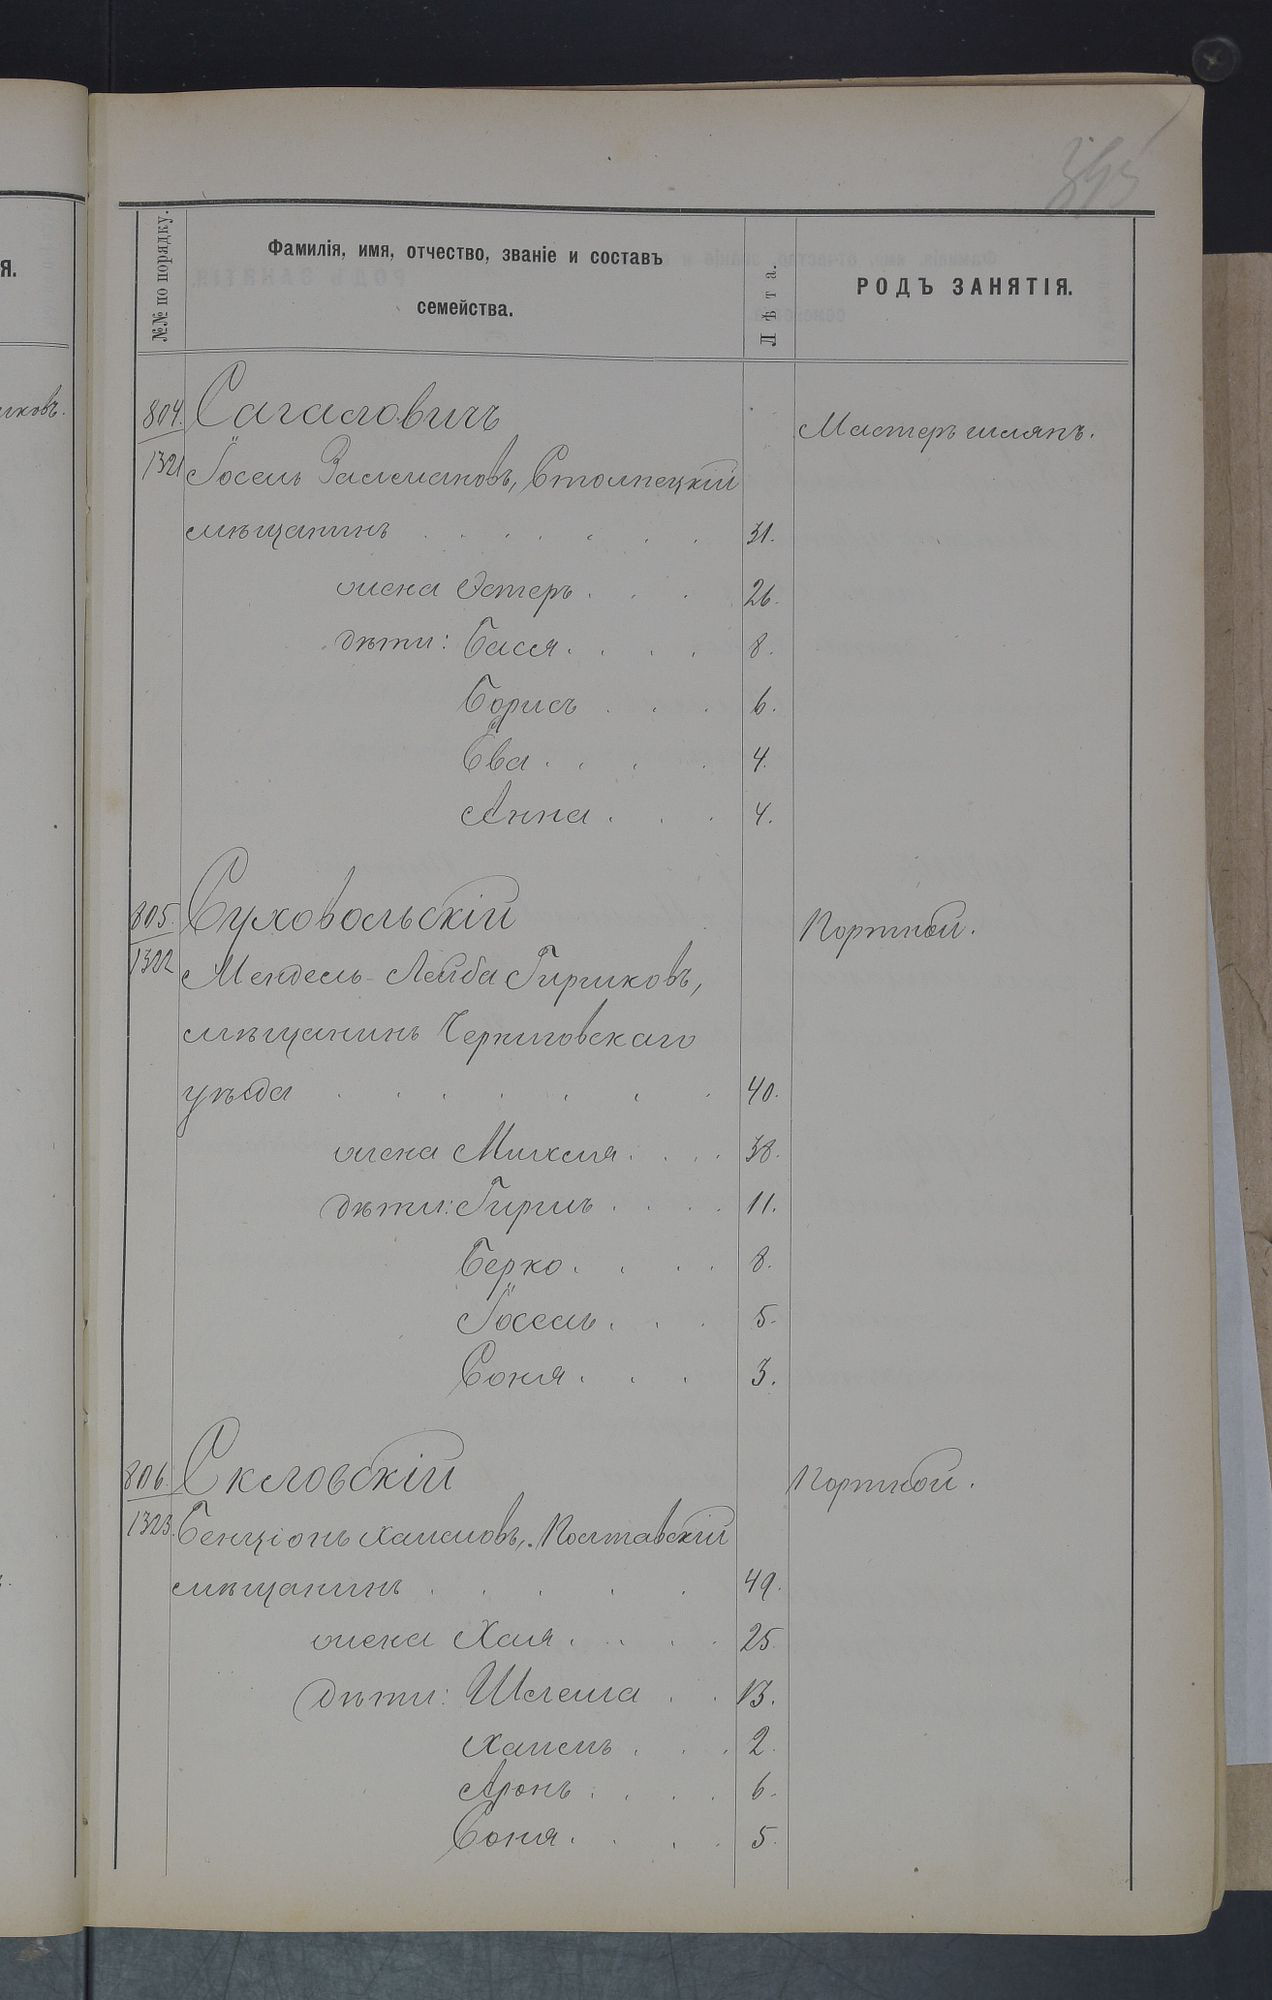 395
№№ по порядку.
Фамилія, имя, отчество, званіе и составъ
семейства.
Лѣта.
РОДЪ ЗАНЯТІЯ.
Я.
804. Сагаловичъ Мастеръ шляпъ.
1321 Іосель Залмановъ, Столпецкій
мѣщанинъ 31.
жена Эстеръ 26.
дѣти: Бася 8.
Борисъ 6.
Ева 4.
Анна 4.
805. Суховольскій Портной.
1322 Мендель-Лейба Гиршковъ,
мѣщанинъ Черниговскаго
уѣзда 40.
жена Михля 38.
дѣти: Гиршъ 11.
Берко 8.
Іосель 5.
Соня 3.
806. Скловскій Портной.
1323. Бенціонъ Хаимовъ, Полтавскій
мѣщанинъ 49.
жена Хая 25.
дѣти: Шлема 13.
Хаимъ 2.
Аронъ 6.
Соня 5.